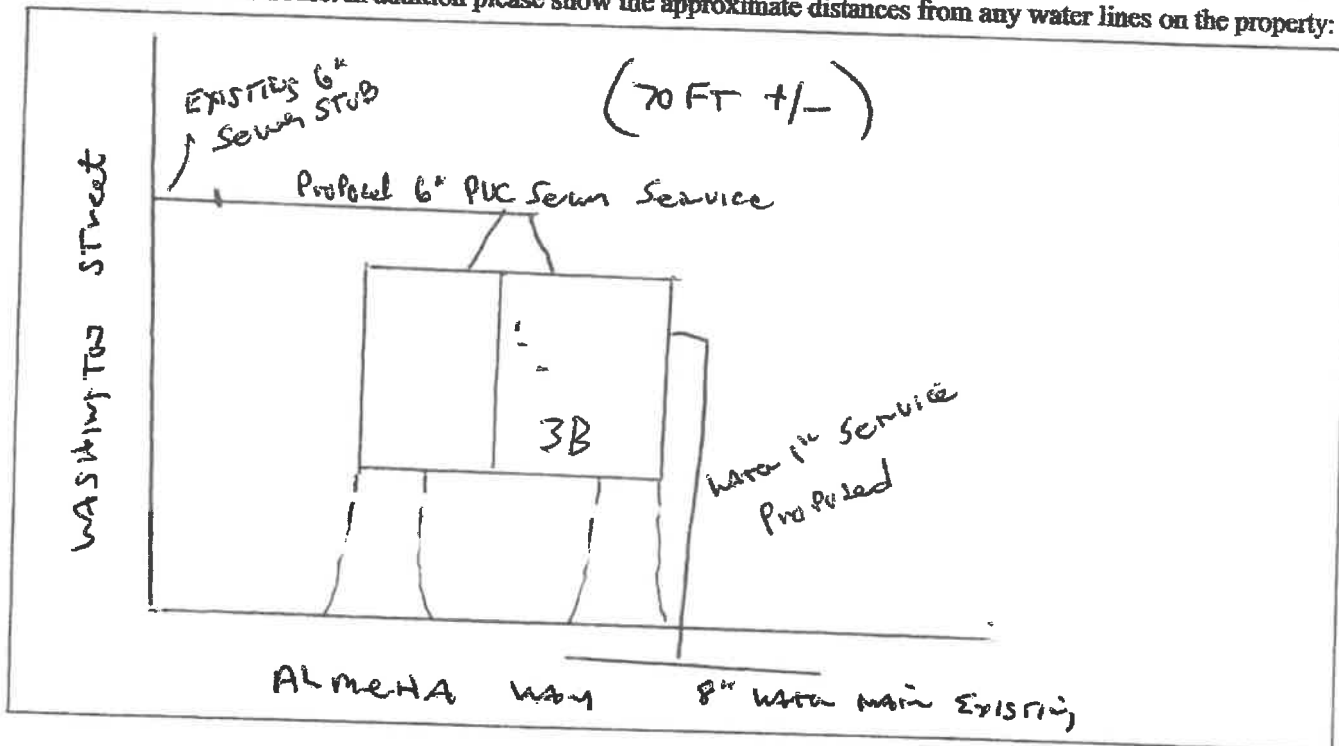 addition please show the approximate distances from any water lines on the property:
EXISTING 6"
Sewer STUB
(70 FT +/-)
Proposed 6" PVC Sewer Service
WASHINGTON STreet
3B
Water 1" Service
Proposed
ALMeHA WAY
8" Water main Existing